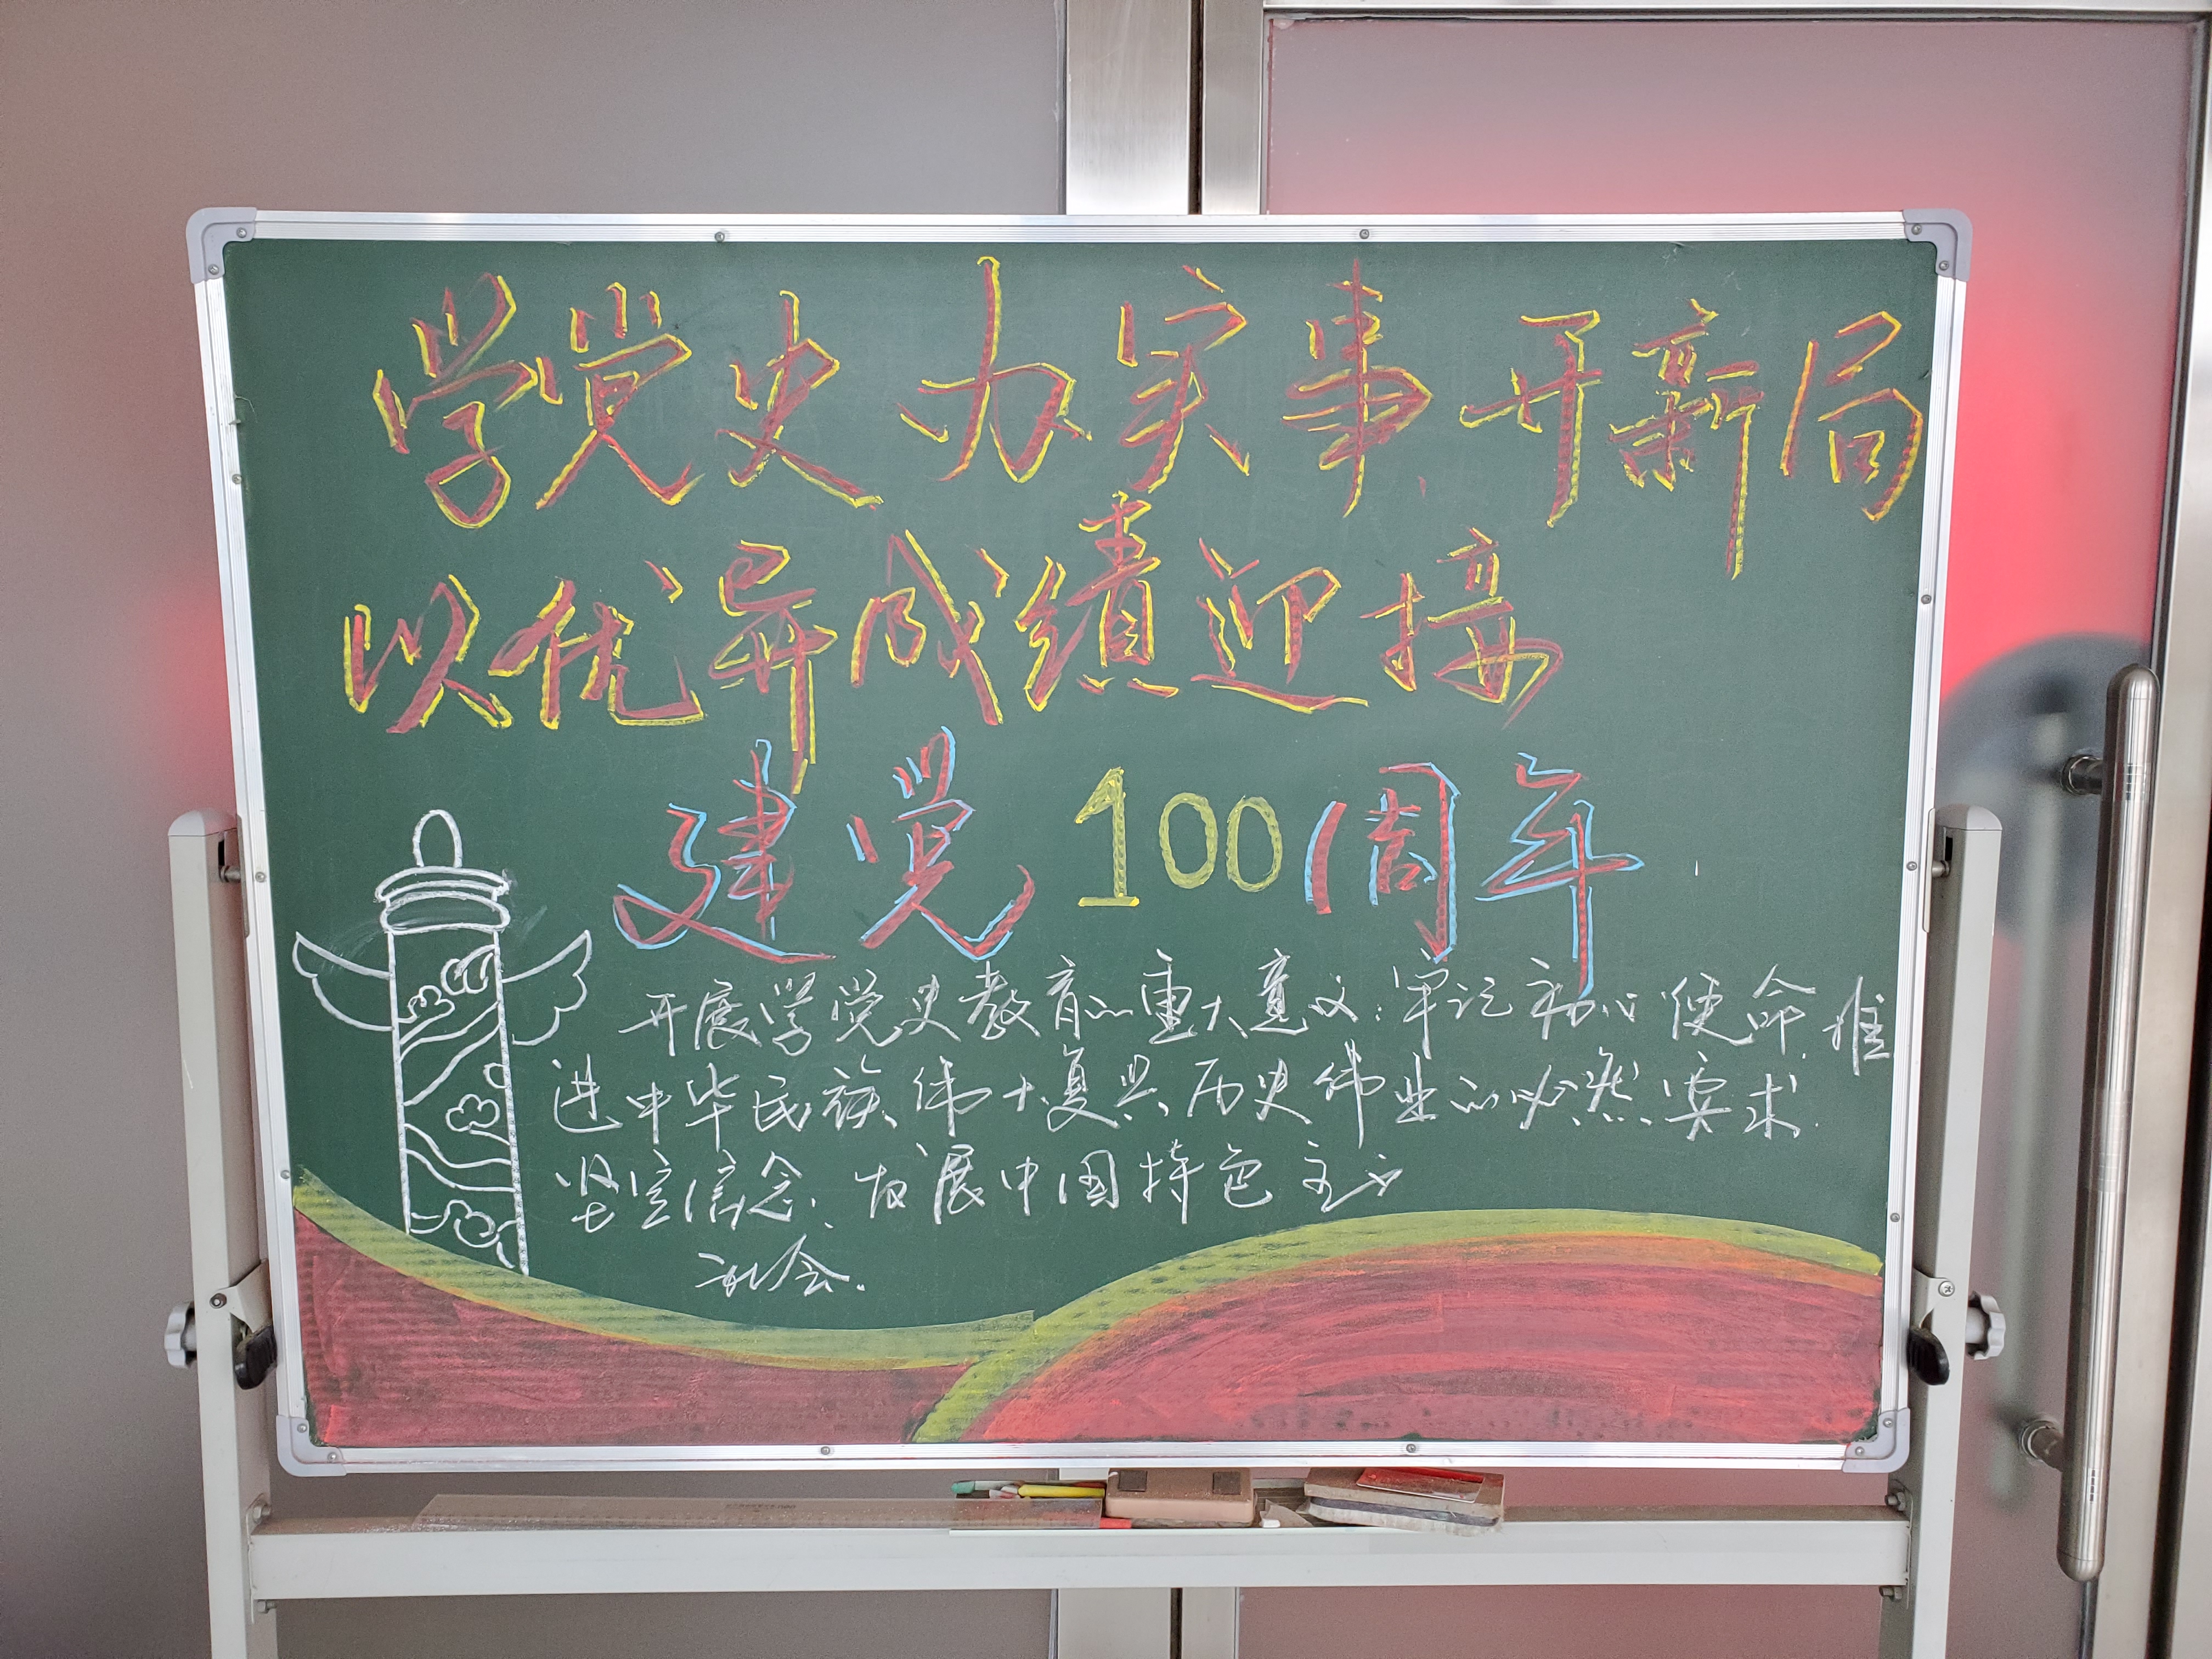 学党史 办实事、开新局
以优异成绩迎接
建党100周年
开展学党史教育的重大意义:牢记初心使命、推
进中华民族伟大复兴历史伟业的必然要求.
坚定信念: 发展中国特色主义
社会.